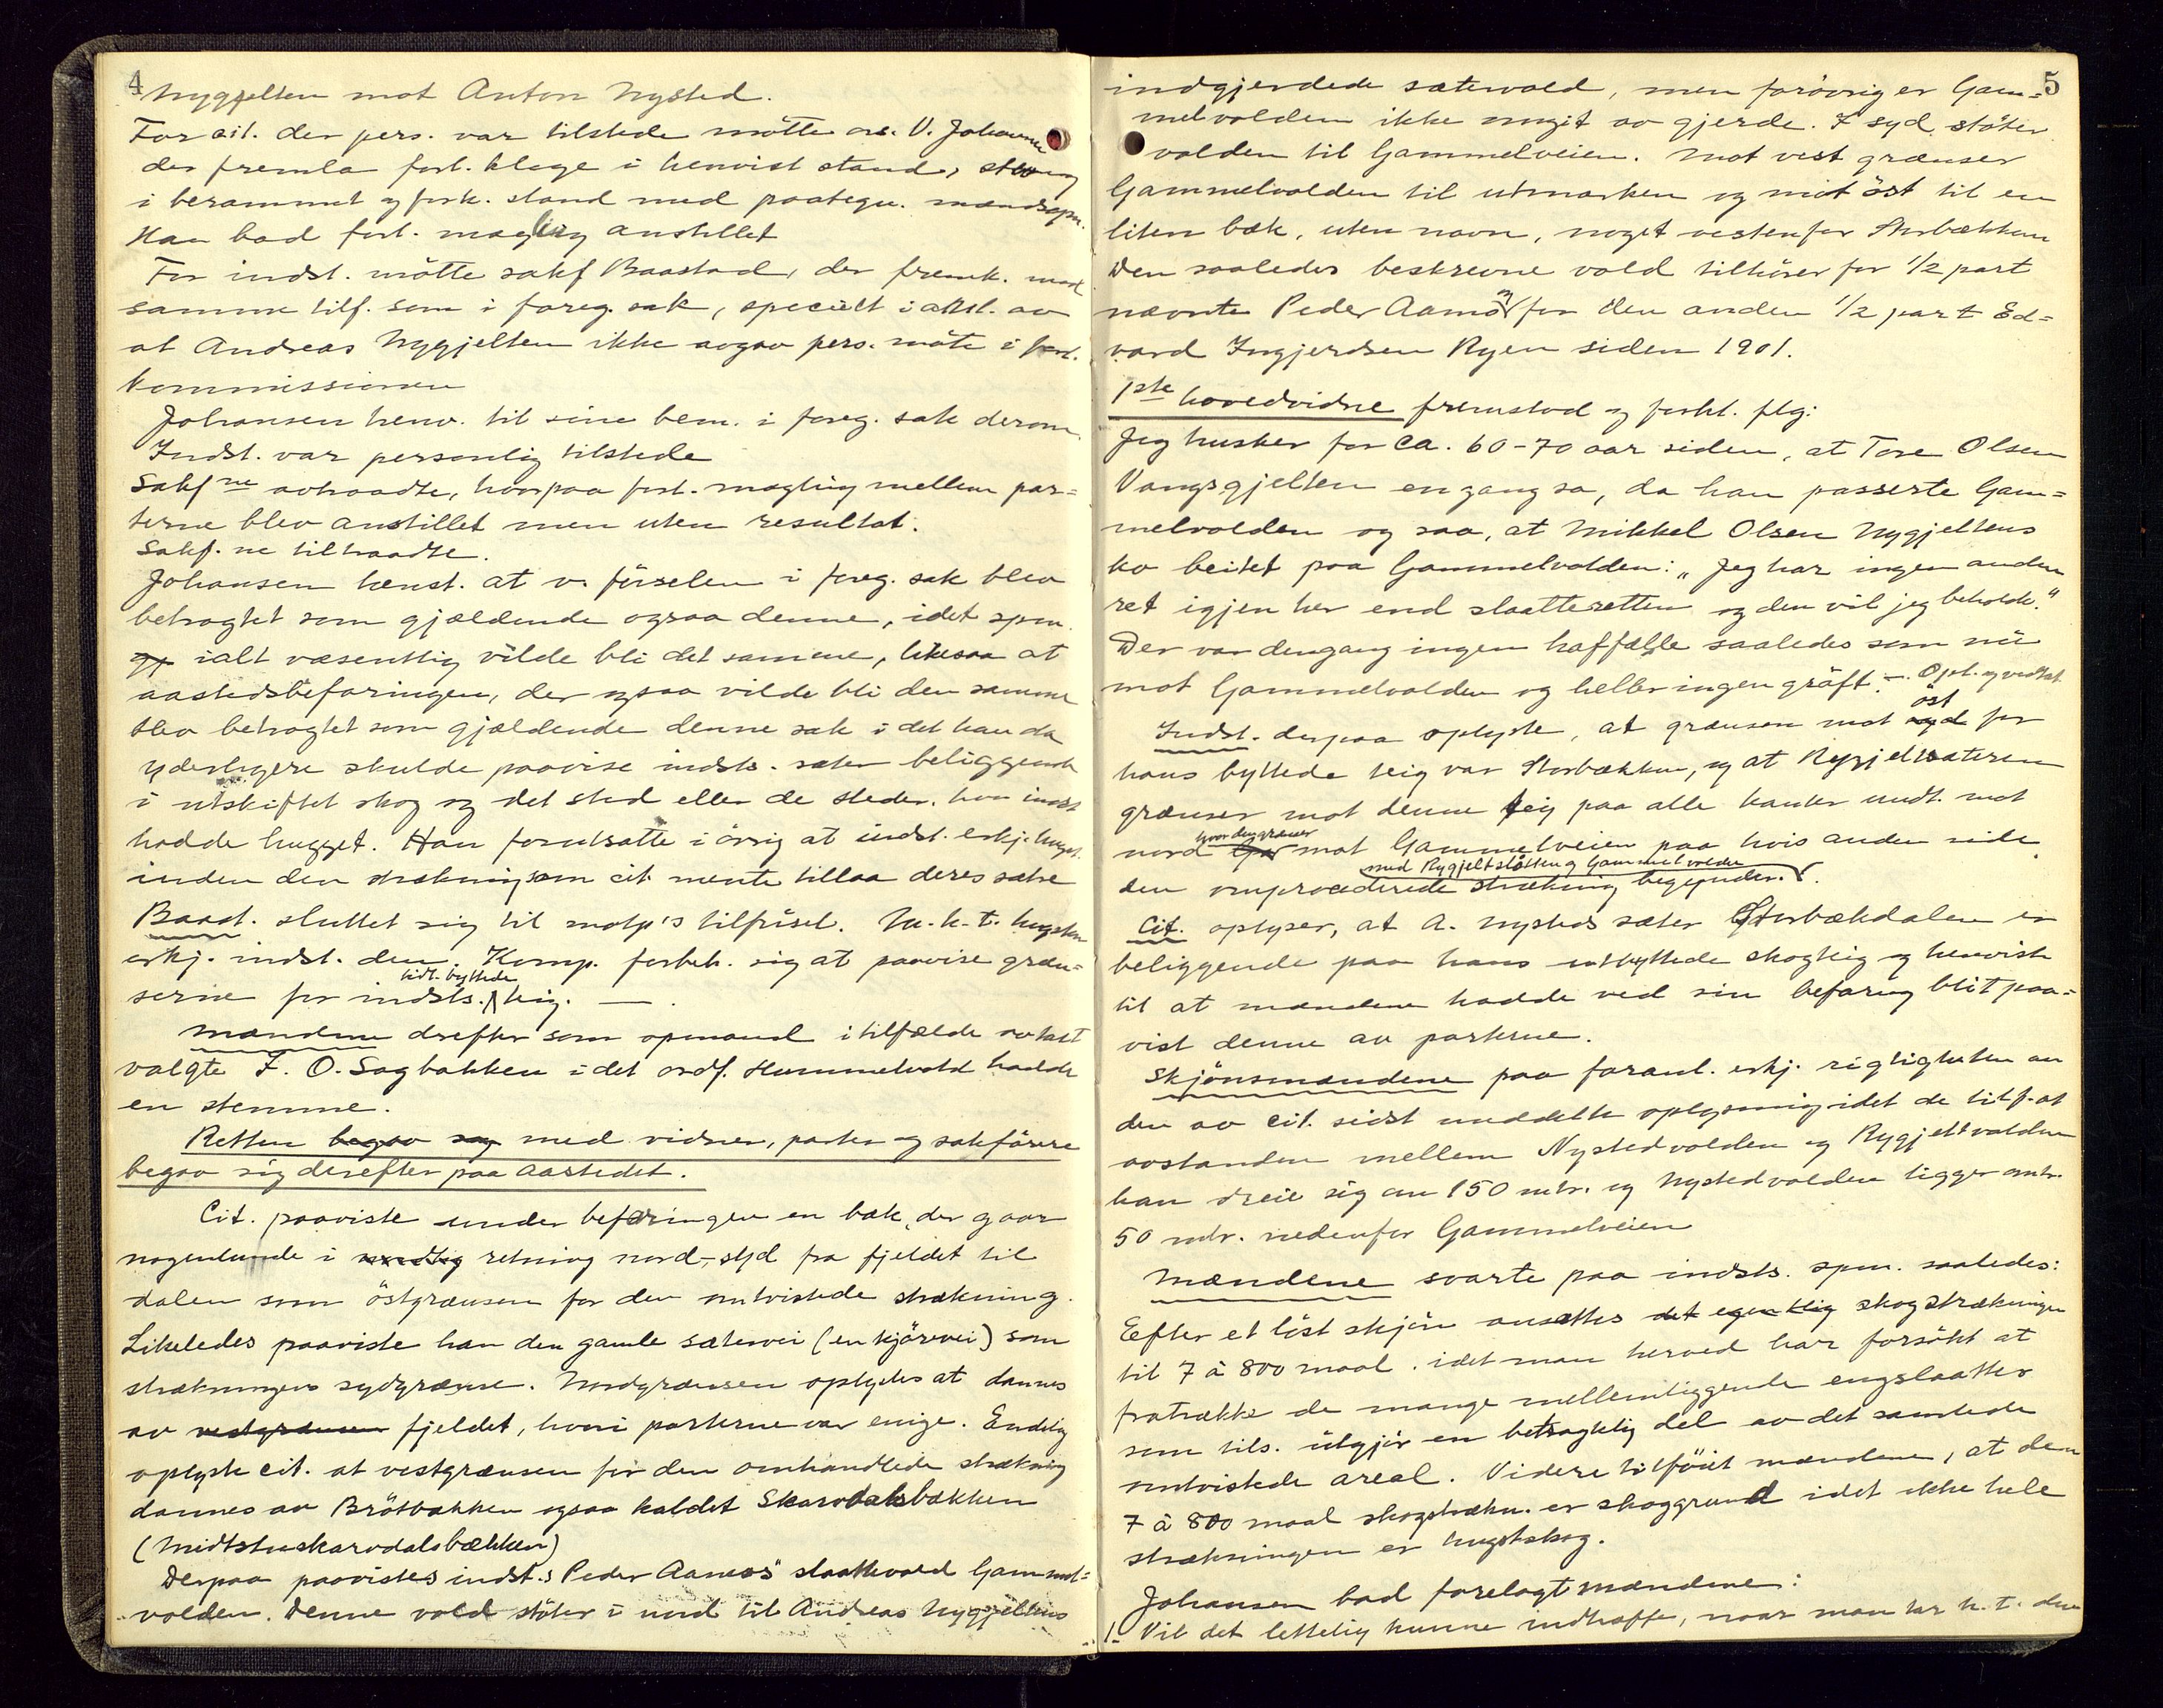 4
Nygjelten mot Anton Nysted.
For cit. der pers. var tilstede mötte ors. V. Johansen
der fremla forl. klage i henvist stand, stevning
i berammet og fork. stand med paategn.
Han bad forl. mægling anstillet
For indst. mötte sakf Baastad, der fremk. med
samme tilf. som i foreg. sak, specielt i anl. av
at Andreas Nygjelten ikke avgav pers. möte i forl.
kommissionen
Johansen henv. til sine bem. i foreg. sak derom.
Indst. var personlig tilstede
Sakf ne avtraadte, hvorpaa forl. mægling mellem par=
terne blev anstillet men uten resultat.
Sakf. ne tiltraadte.
Johansen henst. at v. förselen i foreg. sak blev
betragtet som gjældende ogsaa denne, idet spm.
ialt væsentlig vilde bli det samme, likesaa at
aastedsbefaringen, der ogsaa vilde bli den samme
blev betragtet som gjældende denne sak i det han da
yderligere skulde paavise indsts. sæter beliggende
i utskiftet skog og det sted eller de steder, hvor indst
hadde hugget. Han forutsatte i övrig at indst. erkj. hugst.
inden den strækning som cit. mente tillaa deres sætre
Baast. sluttet sig til motp's tilförsel. M.h.t. hugsten
erkj. indst. den. Komp. forbeh. sig at paavise græn=
serne for indsts. utbyttede teig. —.
Mændene drefter som opmand i tilfælde av
valgte I. O. Sagbakken idet ordf. Hummelvold hadde
en stemme.
Retten begav sig med vidner, parter og sakförere
begav sig derefter paa aastedet.
Cit. paaviste under befaringen en bæk, der gaar
nogenlunde i retning nord-syd fra fjeldet til
dalen som östgrænsen for den omtvistede strækning.
Likeledes paaviste han den gamle sætervei (en kjörevei) som
strækningens sydgrænse. Nordgrænsen oplystes at dannes
av vestgrænsen fjeldet, hvori parterne var enige. Endelig
oplyste cit. at vestgrænsen for den omhandlede strækning
dannes av Brötbækken ogsaa kaldet Skarvdalsbækken
(Midtstuskarvdalsbækken)
Derpaa paavistes indst.s Peder Aamos' slaattevold Gammel=
volden. Denne vold stöter i nord til Andreas Nygjeltens
5
indgjerdede sætervold, men forövrig er Gam=
melvolden ikke noget av gjerde. I syd stöter
volden til Gammelveien. Mot vest grænser
Gammelvolden til utmarken og mot öst til en
liten bæk, uten navn, noget vestenfor Storbækken
Den saaledes beskrevne vold tilhörer for 1/2 part
nævnte Peder Aamo for den anden 1/2 part Ed=
vard Ingjerdsen Ryen siden 1901.
1ste hovedvidne fremstod og forkl. flg:
Jeg husker for ca. 60-70 aar siden, at Tore Olsen
Vangsgjelten engang sa, da han passerte Gam=
melvolden og saa, at Mikkel Olsen Nygjeltens
ko beitet paa Gammelvolden: „Jeg har ingen anden
ret igjen her end slaatteretten og den vil jeg beholde."
Der var dengang ingen havfælle saaledes som nu
mot Gammelvolden og heller ingen gröft. —. Opl. og vedtat.
Indst. derpaa oplyste, at grænsen mot syd öst for
hans byttede teig var Storbækken, og at Rygjeltsæteren
grænser mot denne teig paa alle kanter undt. mot
nord hvor den grænser mot Gammelveien paa hvis anden side
den omprocederede strækning med Rygjeltslåtten og Gammelvolden begynder.
Cit. oplyser, at A. Nysteds sæter i Storbækdalen er
beliggende paa hans utbyttede skogteig og henviste
til at mændene hadde ved sin befaring blit paa=
vist denne av parterne.
Skjönsmændene paa foranl. erkj. rigtigheten av
den av cit. sidst meddelte oplysning idet de tilf. at
avstanden mellem Nystedvolden og Rygjeltvolden
kan dreie sig om 150 mtr. og Nystedvolden ligger omtr.
50 mtr. nedenfor Gammelveien
Mændene svarte paa indsts. spm. saaledes:
Eefter et löst skjön ansættes det egentlig skogstrækningen
til 7 à 800 maal. idet man herved har forsökt at
fratrække de mange mellemliggende engslaatter
som tils. utgjör en betragtelig del av det samlede
omtvistede areal. Videre tilföiet mændene, at den
7 à 800 maal skogstrækn. er skoggrund idet ikke hele
strækningen er hugstskog.
Johansen bad forelagt mændene:
1. Vil det lettelig kunne indtræffe, naar man har h. t. den